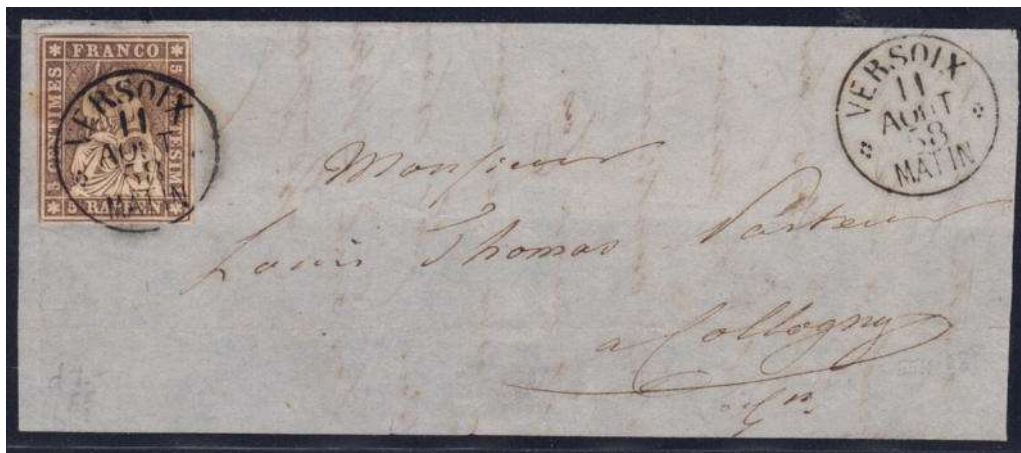 FRANCO
5 CENTIMES
5 RAPPEN
CENTESIMI
VERSOIX
11
AOUT
58
MATIN
VERSOIX
11
AOUT
58
MATIN
Monsieur
Louis Thomas Pasteur
a Collogny